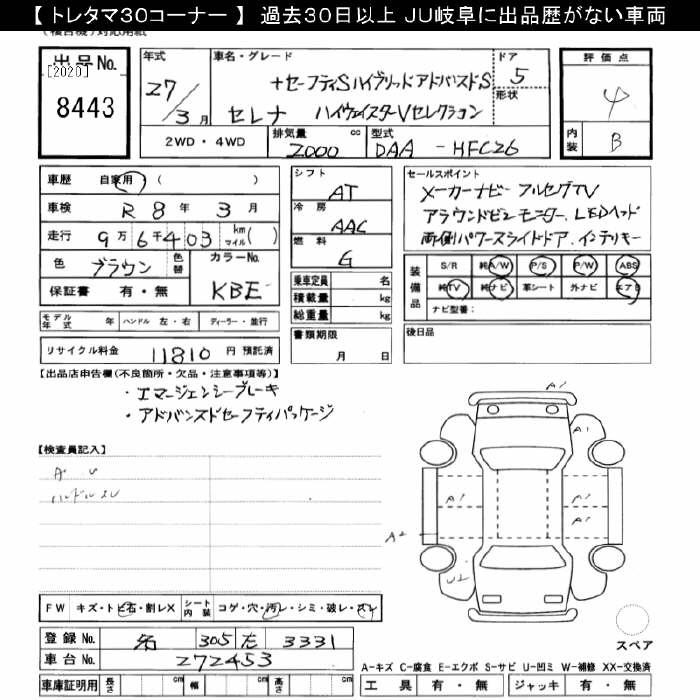 【 トレタマ30コーナー 】 過去30日以上 JU岐阜に出品歴がない車両
出品No.
[2020]
8443
年式
27/3月
車名・グレード
+セーフティSハイブリッドアドバンスドS
セレナ ハイウェイスターVセレクション
ドア
5
形状
評価点
4
内装 B
2WD・4WD
排気量 cc
2000
型式
DAA - HFC26
車歴 自家用・( )
車検 R 8年 3月
走行 9万6千403 km マイル( )
色 ブラウン 色替
カラーNo.
KBE
保証書 有・無
シフト
AT
冷房
AAC
燃料
G
乗車定員 名
積載量 kg
総重量 kg
セールスポイント
メーカーナビー フルセグTV
アラウンドビューモニター、LEDヘッド
両側パワースライドドア、インテリキー
装備品
S/R 純A/W P/S P/W ABS
純TV 純ナビ 革シート 外ナビ エアB
ナビ型番:
モデル年式 年 ハンドル 左・右 ディーラー・並行
リサイクル料金 11810 円 預託済
書類期限
月 日
後日品
【出品店申告欄(不良箇所・欠品・注意事項等)】
・エマージェンシーブレーキ
・アドバンスドセーフティパッケージ
【検査員記入】
A・U
ハンドルスレ
A1
A1
A1
A1
A1
A2
U2
FW キズ・トビ石・割レX シート内装 コゲ・穴・汚レ・シミ・破レ・スレ
スペア
登録No. 名 305 た 3331
車台No. 272453
A-キズ C-腐食 E-エクボ S-サビ U-凹ミ W-補修 XX-交換済
車庫証明用 長さ cm 幅 cm 高さ cm
工具 有・無 ジャッキ 有・無